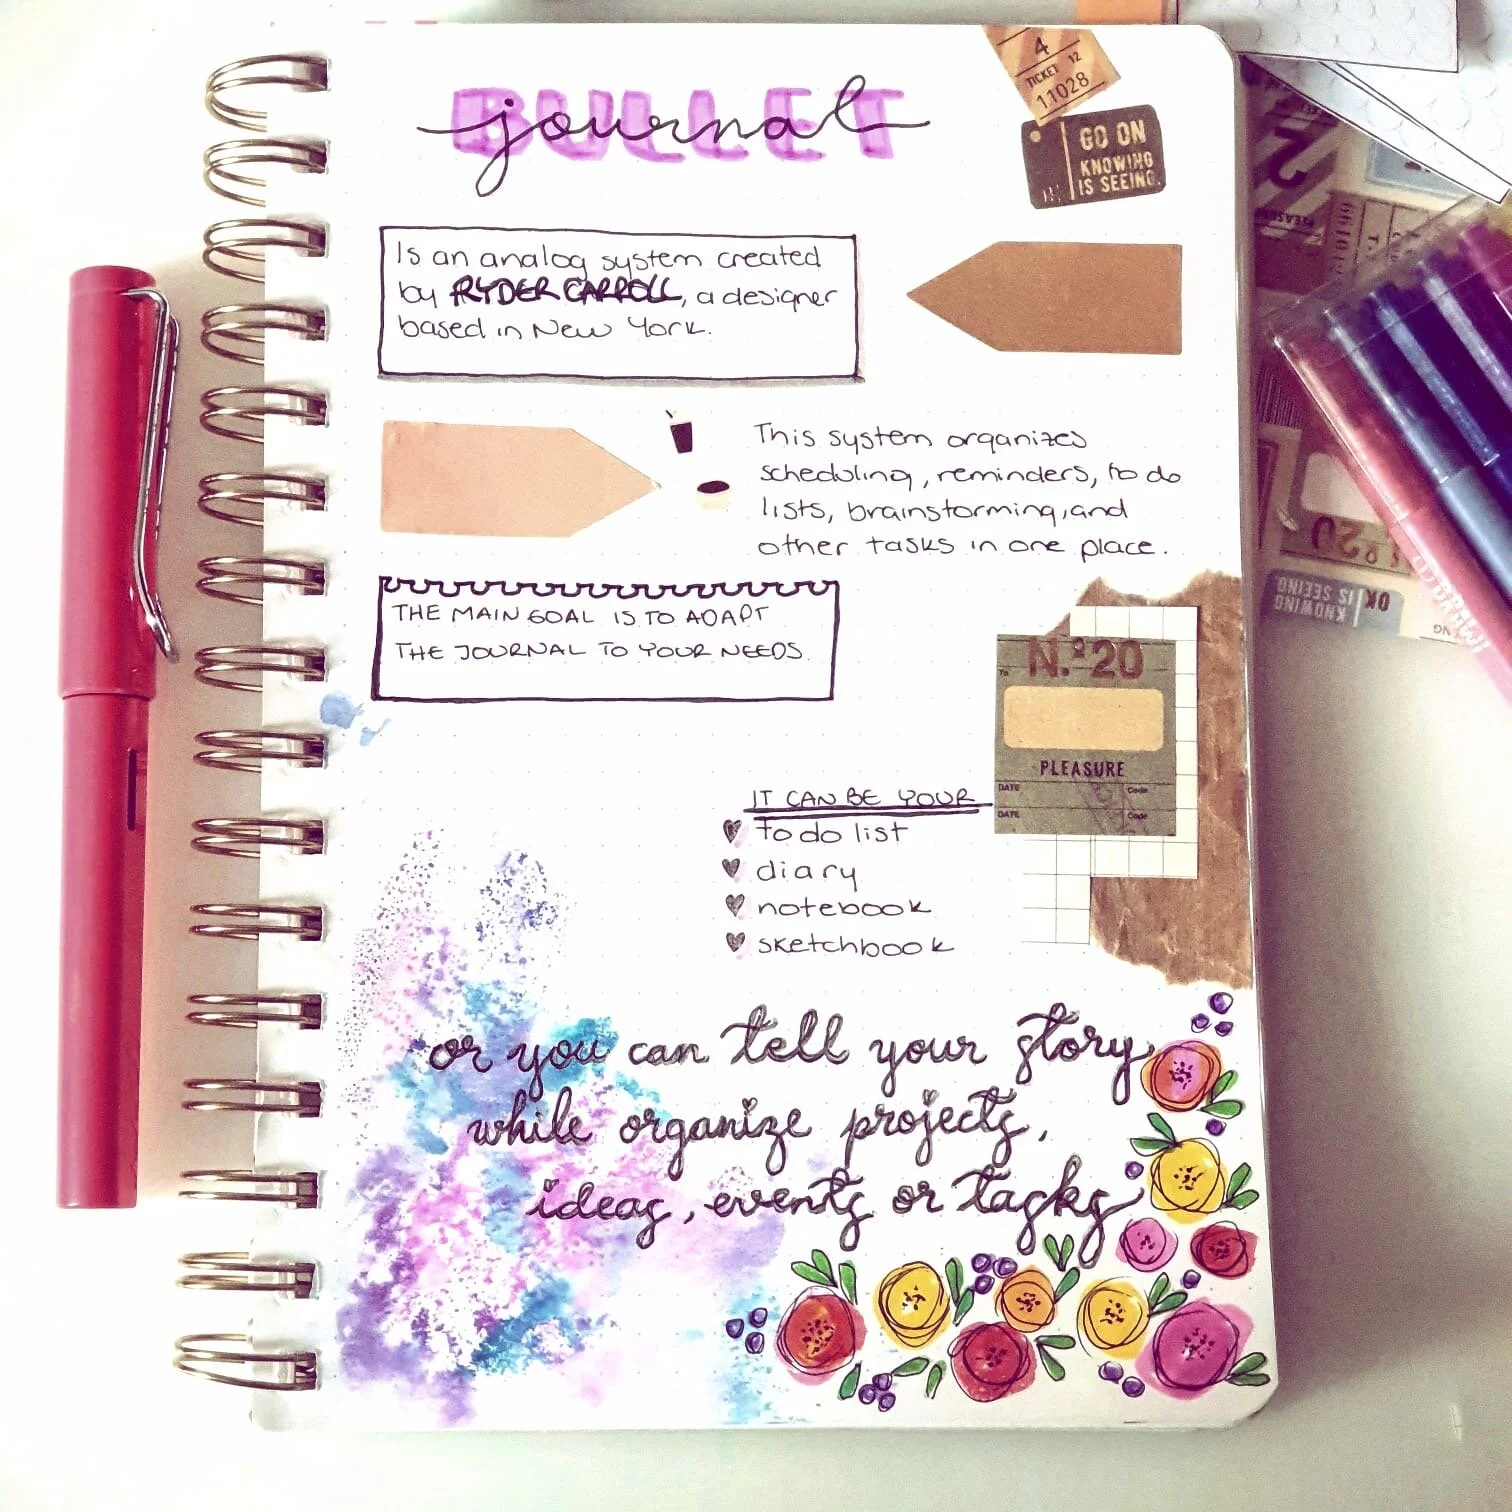 BULLET
journal
4
TICKET 12
11028
GO ON
KNOWING
IS SEEING.
Is an analog system created
by RYDER CARROLL, a designer
based in New York.
This system organizes
scheduling, reminders, to do
lists, brainstorming, and
other tasks in one place.
THE MAIN GOAL IS TO ADAPT
THE JOURNAL TO YOUR NEEDS.
N.º 20
To
PLEASURE
DATE Code
DATE Code
IT CAN BE YOUR
to do list
diary
notebook
sketchbook
or you can tell your story
while organize projects,
ideas, events or tasks
2
PLEASURE
Nº 20
OK
KNOWING
IS SEEING